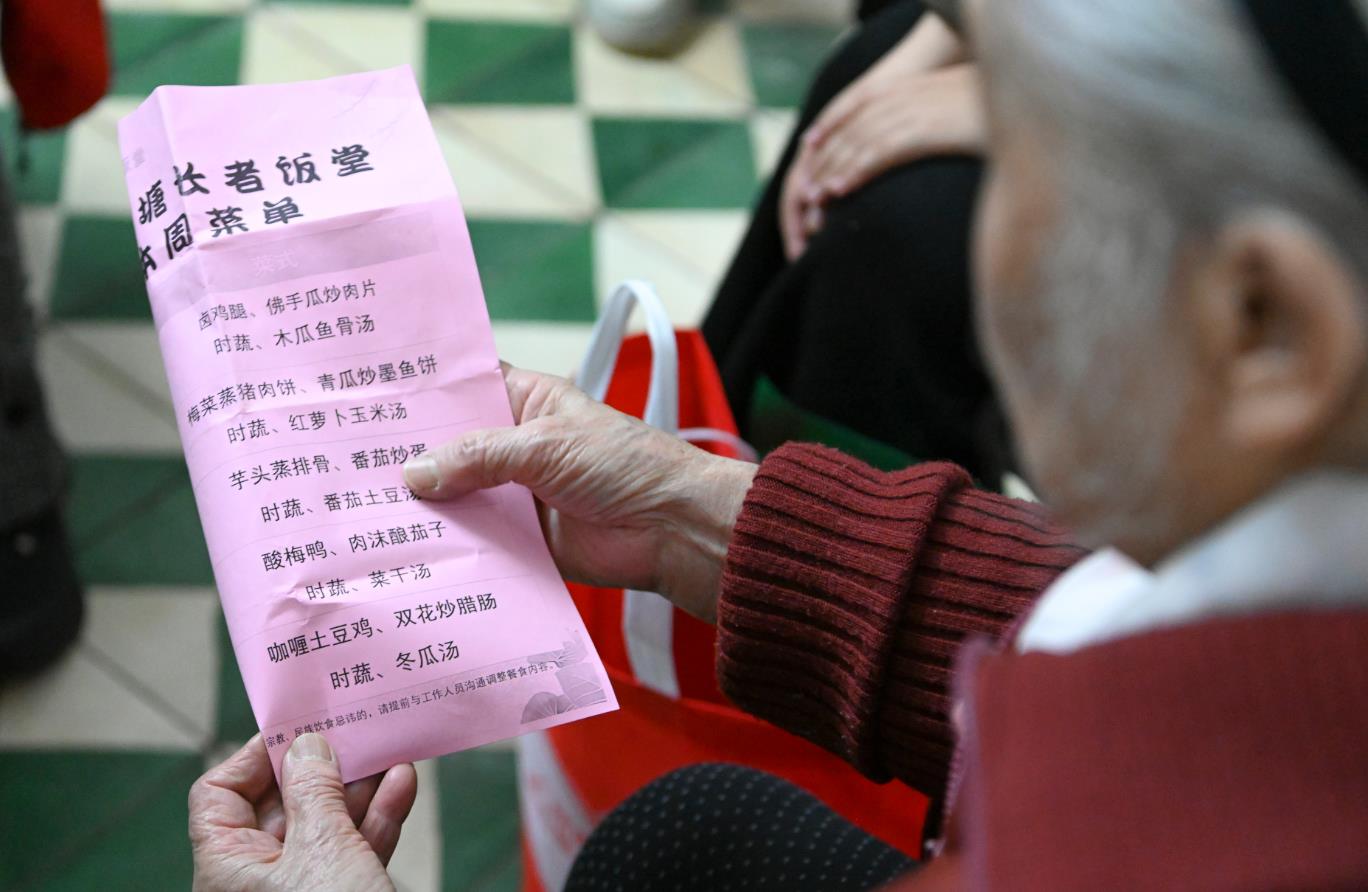 塘长者饭堂
本周菜单
菜式
卤鸡腿、佛手瓜炒肉片
时蔬、木瓜鱼骨汤
梅菜蒸猪肉饼、青瓜炒墨鱼饼
时蔬、红萝卜玉米汤
芋头蒸排骨、番茄炒蛋
时蔬、番茄土豆汤
酸梅鸭、肉沫酿茄子
时蔬、菜干汤
咖喱土豆鸡、双花炒腊肠
时蔬、冬瓜汤
宗教、民族饮食忌讳的，请提前与工作人员沟通调整餐食内容。